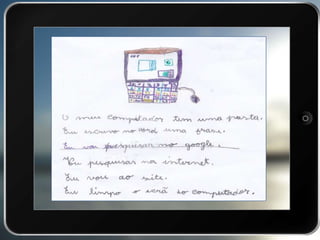 O meu computador tem uma pasta.
Eu escrevo no Word uma frase.
Eu vou pesquisar no google.
Eu pesquisar na internet.
Eu vou ao site.
Eu limpo o ecrã do computador.